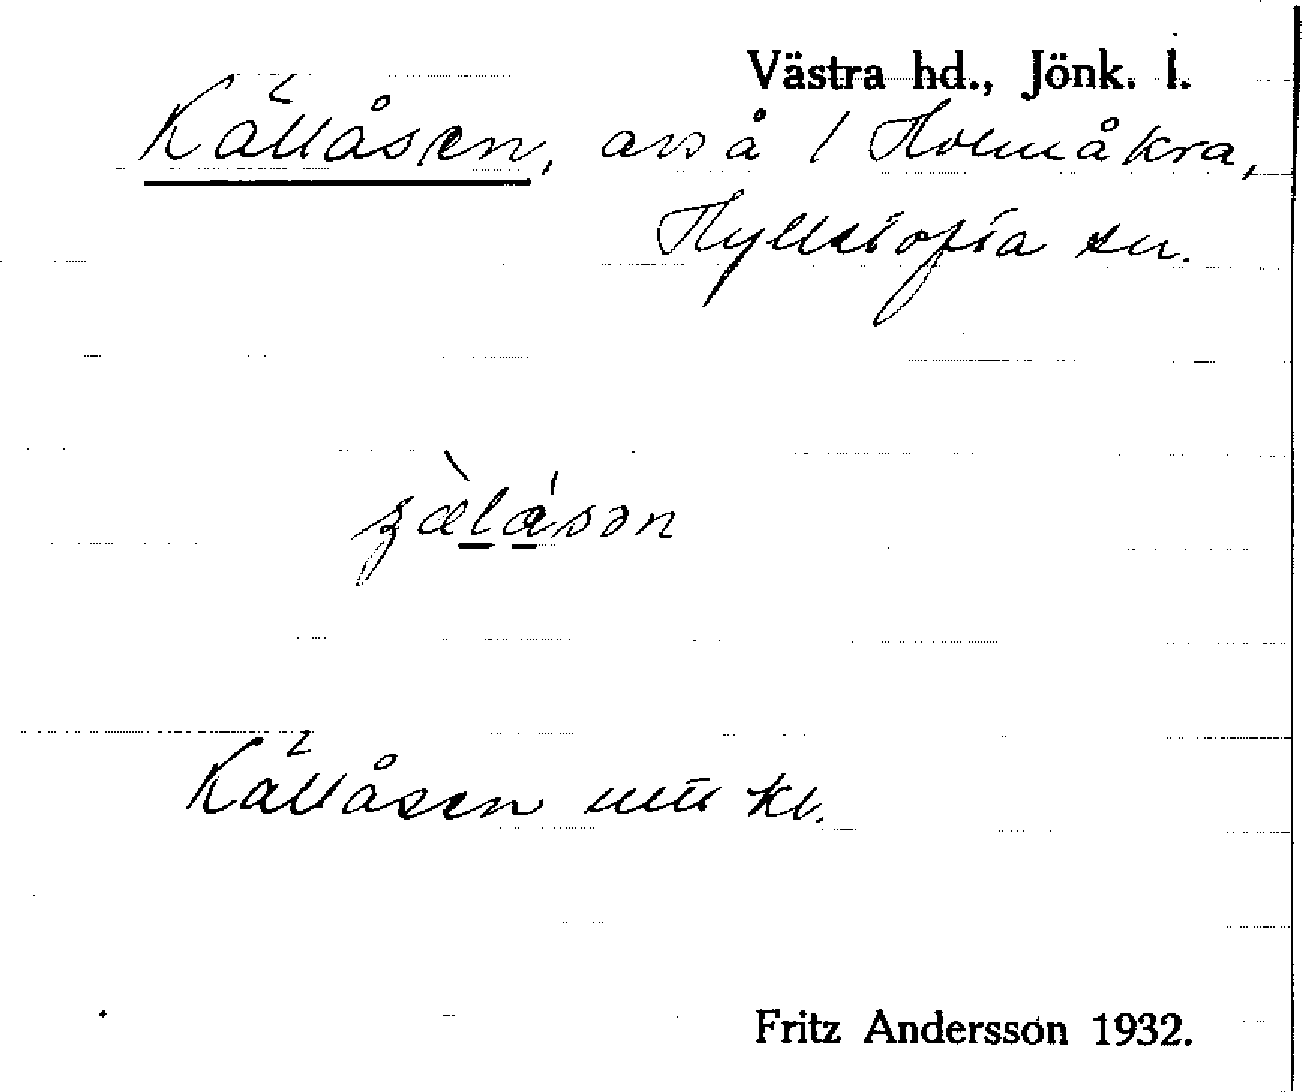 Västra hd., Jönk. l.
Källåsen, avs å / Holmåkra,
Hyllstofta sn.
Källåsen utt kl.
Fritz Andersson 1932.